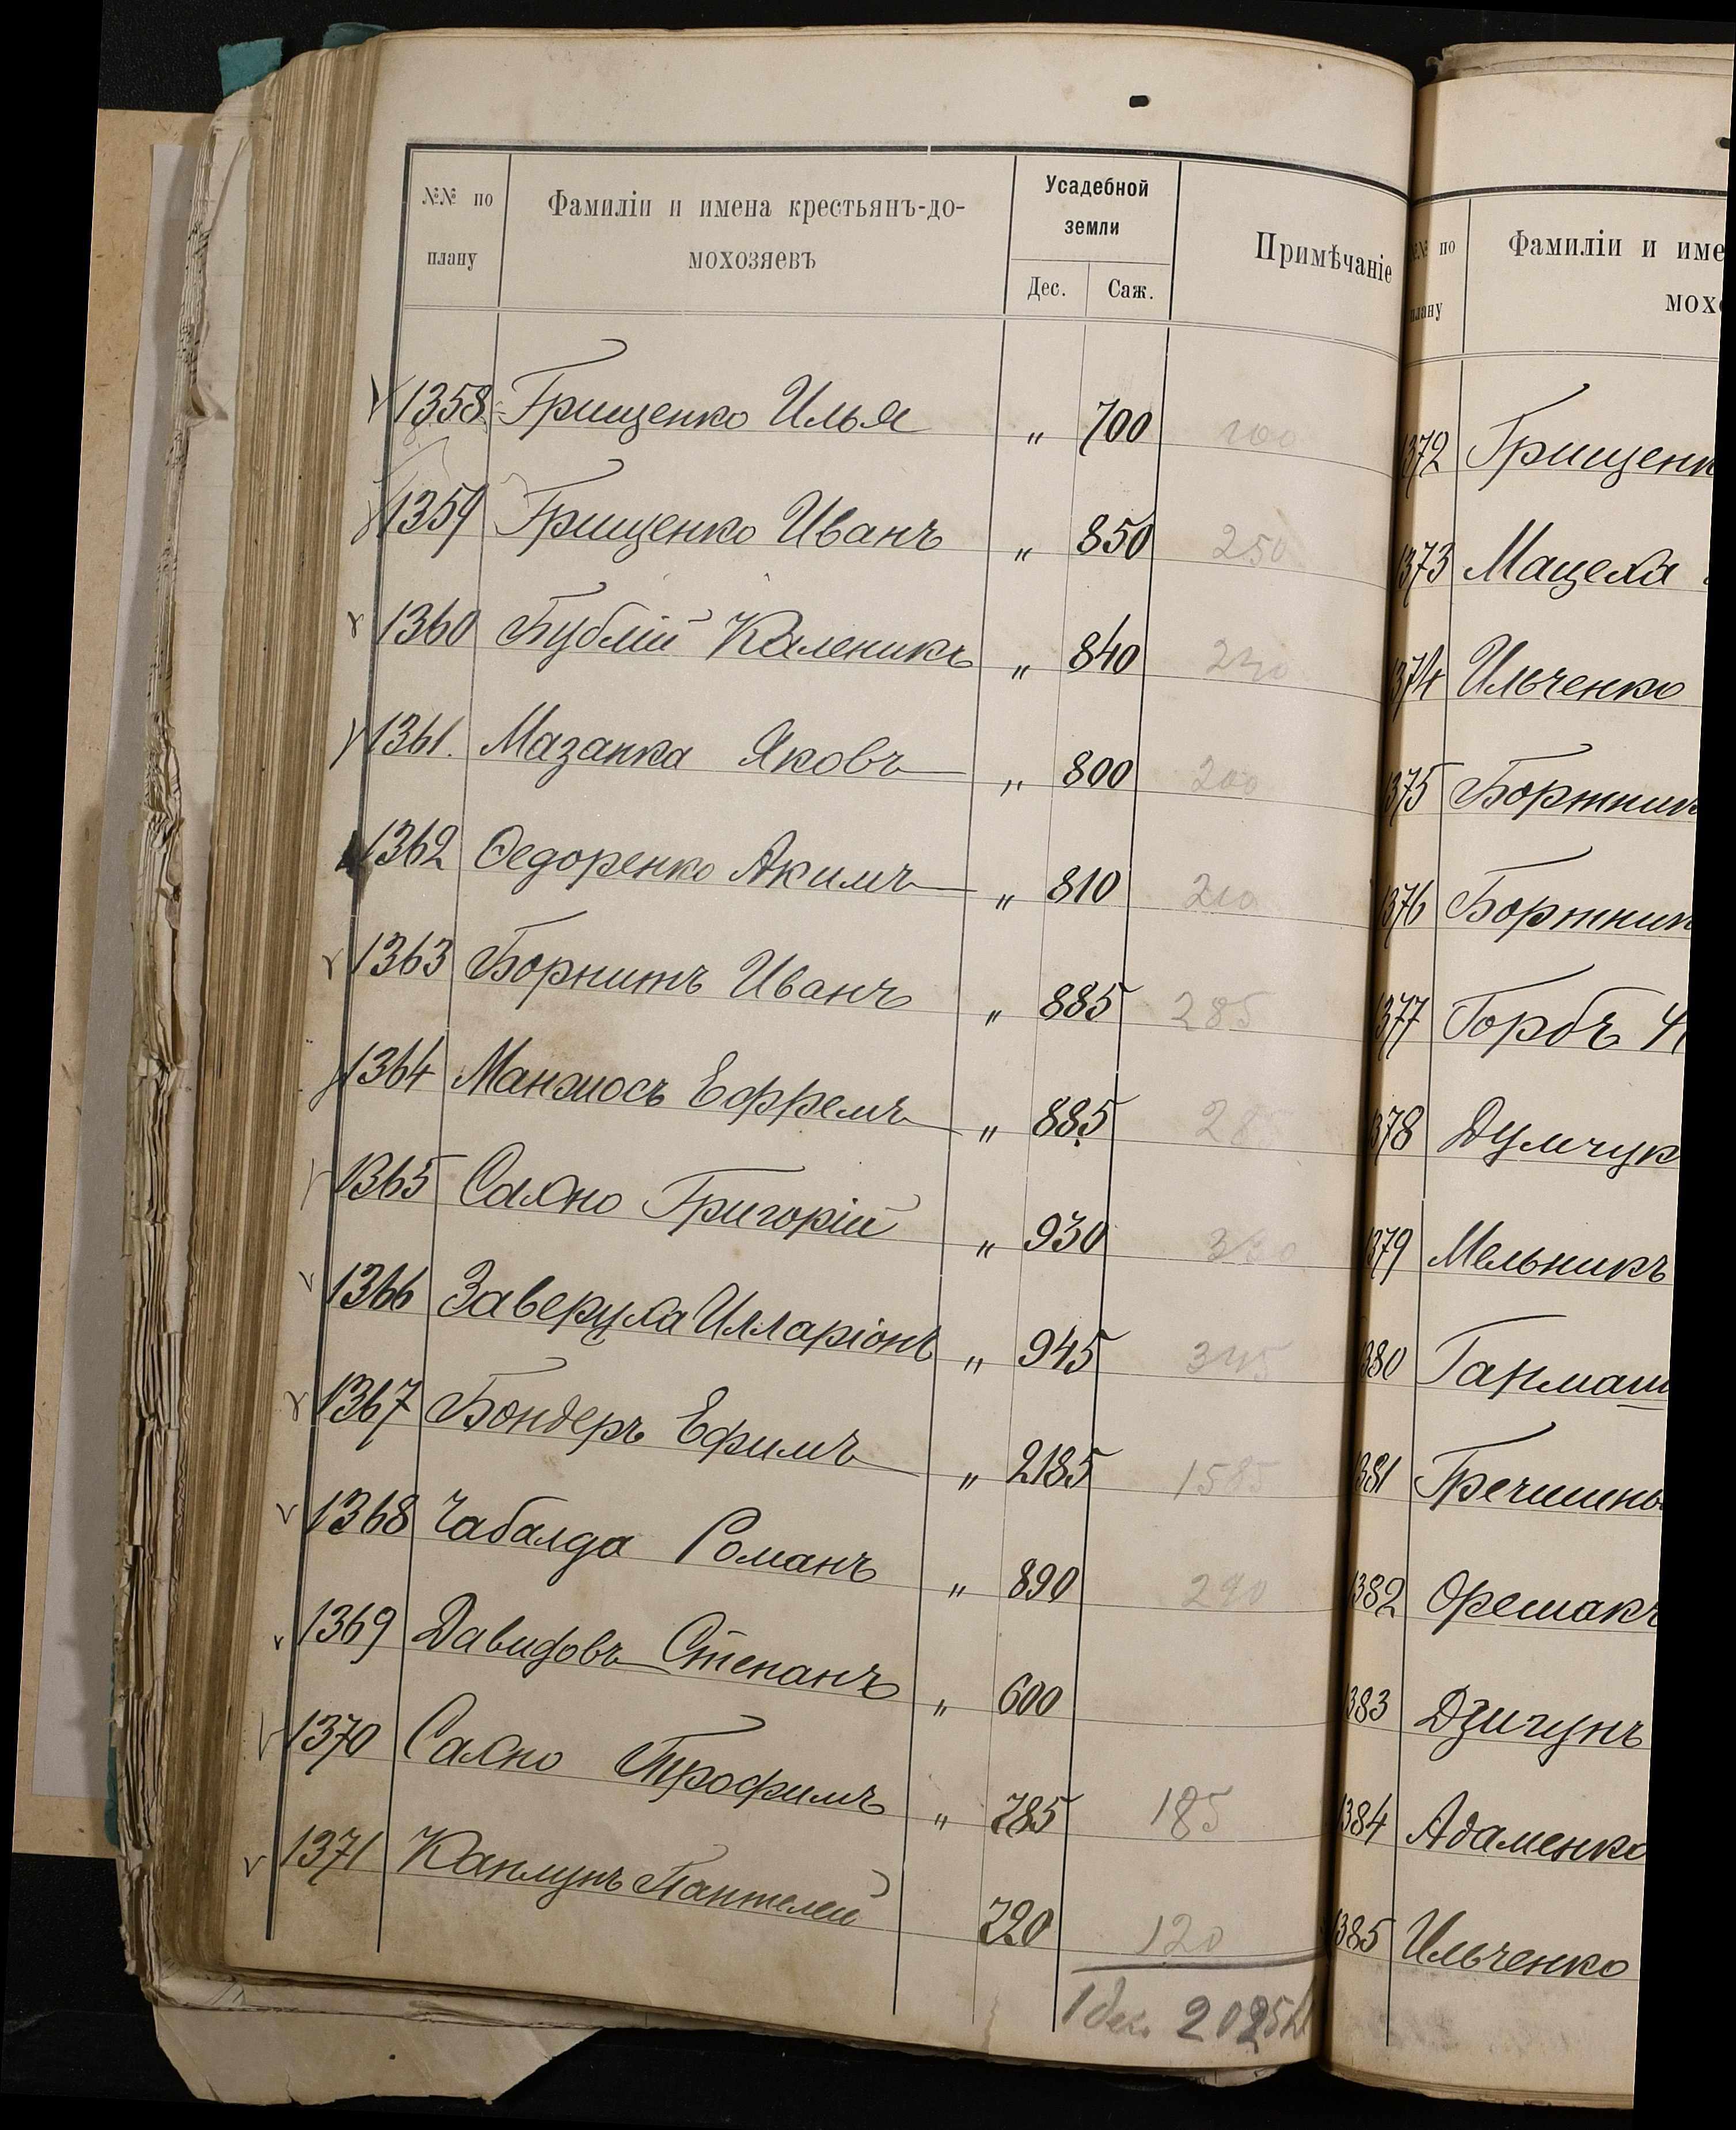 №№ по плану
Фамиліи и имена крестьянъ-до-
мохозяевъ
Усадебной
земли
Дес. Саж.
Примѣчаніе
1358. Грищенко Илья „ 700 100
1359 Грищенко Иванъ „ 850 250
1360 Бублій Каленикъ „ 840 240
1361. Мазанка Яковъ „ 800 200
1362 Ѳедоренко Акимъ „ 810 210
1363 Иванъ „ 885 285
1364 Манжосъ Ефремъ „ 885 28
1365 Сахно Григорій „ 930 330
1366 Заверуха Илларіонъ „ 945 345
1367 Бондеръ Ефимъ „ 2185 1585
1368 Чабалда Романъ „ 890 290
1369 Давидовъ Степанъ „ 600
1370 Сахно Трофимъ „ 785 185
1371 Каплунъ Пантелей 720 120
1 дес. 2025
№№ по
плану
Фамиліи и име
мохо
1372 Грищенк
1373 Мацеха
1374 Ильченко
1375 Бортник
1376 Бортник
1377 Горбъ
1378 Думчук
1379 Мельникъ
1380
1381 Гречишны
1382 Орешакъ
1383 Дзигунъ
1384 Адаменко
1385 Ильченко